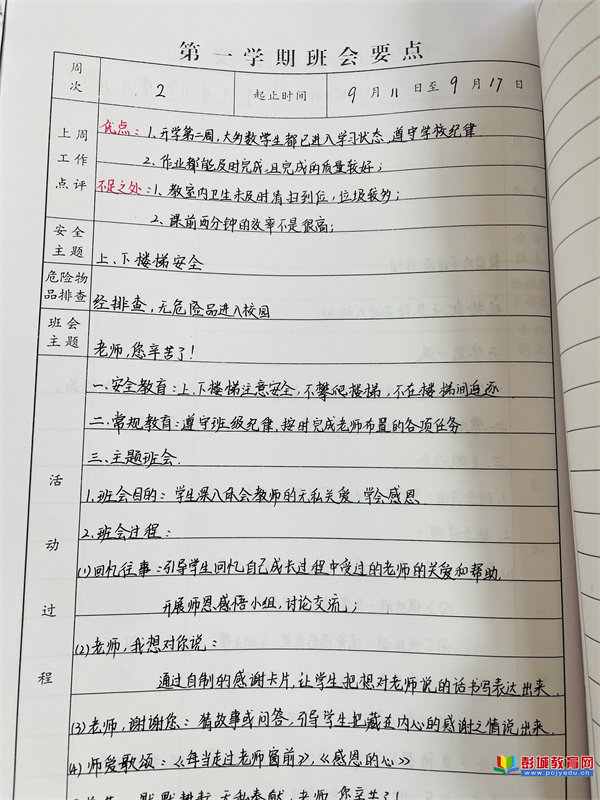 第一学期班会要点
周次 2 起止时间 9月11日至9月17日
上周工作点评
亮点：1、开学第二周，大多数学生都已进入学习状态，遵守学校纪律
2、作业都能及时完成，且完成的质量较好；
不足之处：1、教室内卫生未及时清扫到位，垃圾较多；
2、课前两分钟的效率不是很高；
安全主题
上、下楼梯安全
危险物品排查
经排查，无危险品进入校园
班会主题
老师，您辛苦了！
活动过程
一、安全教育：上、下楼梯注意安全，不攀爬楼梯，不在楼梯间追逐
二、常规教育：遵守班级纪律，按时完成老师布置的各项任务
三、主题班会
1、班会目的：学生深入体会教师的无私关爱，学会感恩
2、班会过程：
(1)回忆往事：引导学生回忆自己成长过程中受过的老师的关爱和帮助
开展师恩感悟小组，讨论交流；
(2)老师，我想对你说：
通过自制的感谢卡片，让学生把想对老师说的话书写表达出来
(3)老师，谢谢您：猜故事或问答，引导学生把藏在内心的感谢之情说出来
(4)师爱歌颂：《每当走过老师窗前》，《感恩的心》
默默耕耘，无私奉献，老师，您辛苦了！
彭城教育网
www.pcjyedu.cn